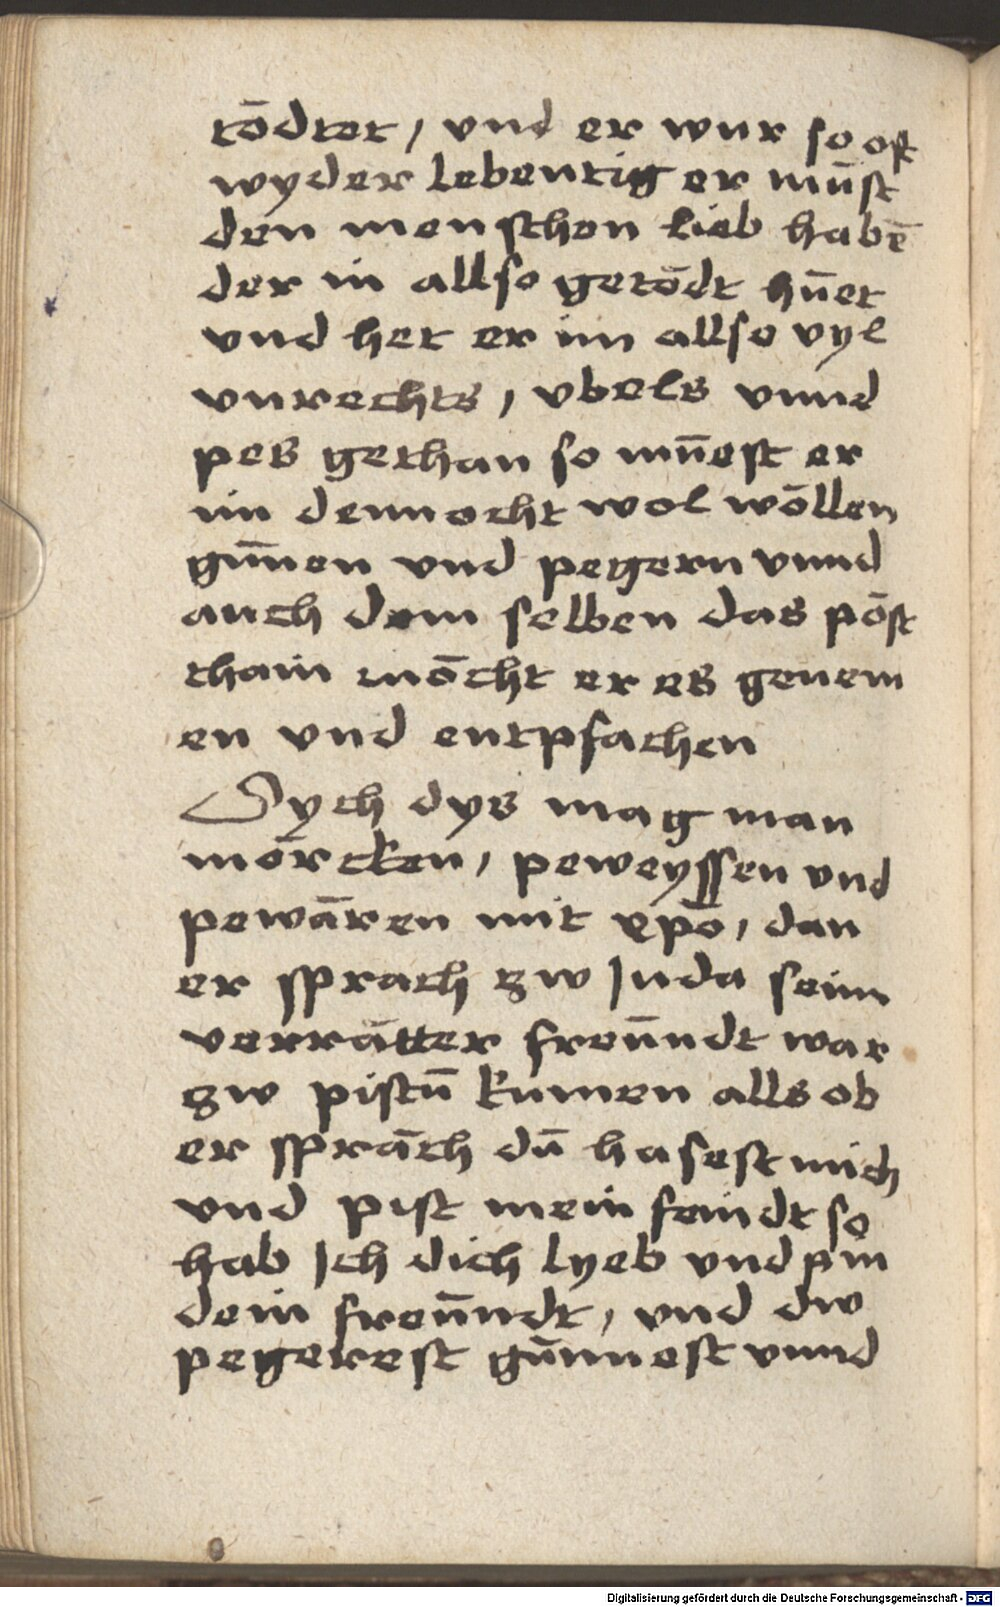 tōdtet / vnd er wur so oft
wyder lebentig er mūst
den menschen lieb habē
der in allso getōdt hūet
vnd het er im allso vyl
vnrechts / vbels vnnd
pes gethan so mūest er
im dennocht wol wōllen
gūnen vnd pegern vnnd
auch dem selben das pōst
thain mōcht er es genem
en vnd entpfachen
Sych dys mag man
mōrcken / peweyssen vnd
pewāren mit xpō / dan
er sprach zw Juda seim
verrātter freūndt war
zw pistū kumen alls ob
er sprāch dū hasest mich
vnd pist mein feindt so
hab Ich dich lyeb vnd pin
dein freūndt / vnd dw
pegerest gūnnest vnnd
Digitalisierung gefördert durch die Deutsche Forschungsgemeinschaft - DFG